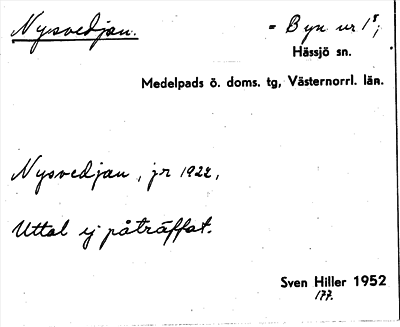 Nysvedjan. = Byn nr 1⁸;
Hässjö sn.
Medelpads ö. doms. tg, Västernorrl. län.
Nysvedjan, jr 1922,
Uttal ej påträffat.
Sven Hiller 1952
177.